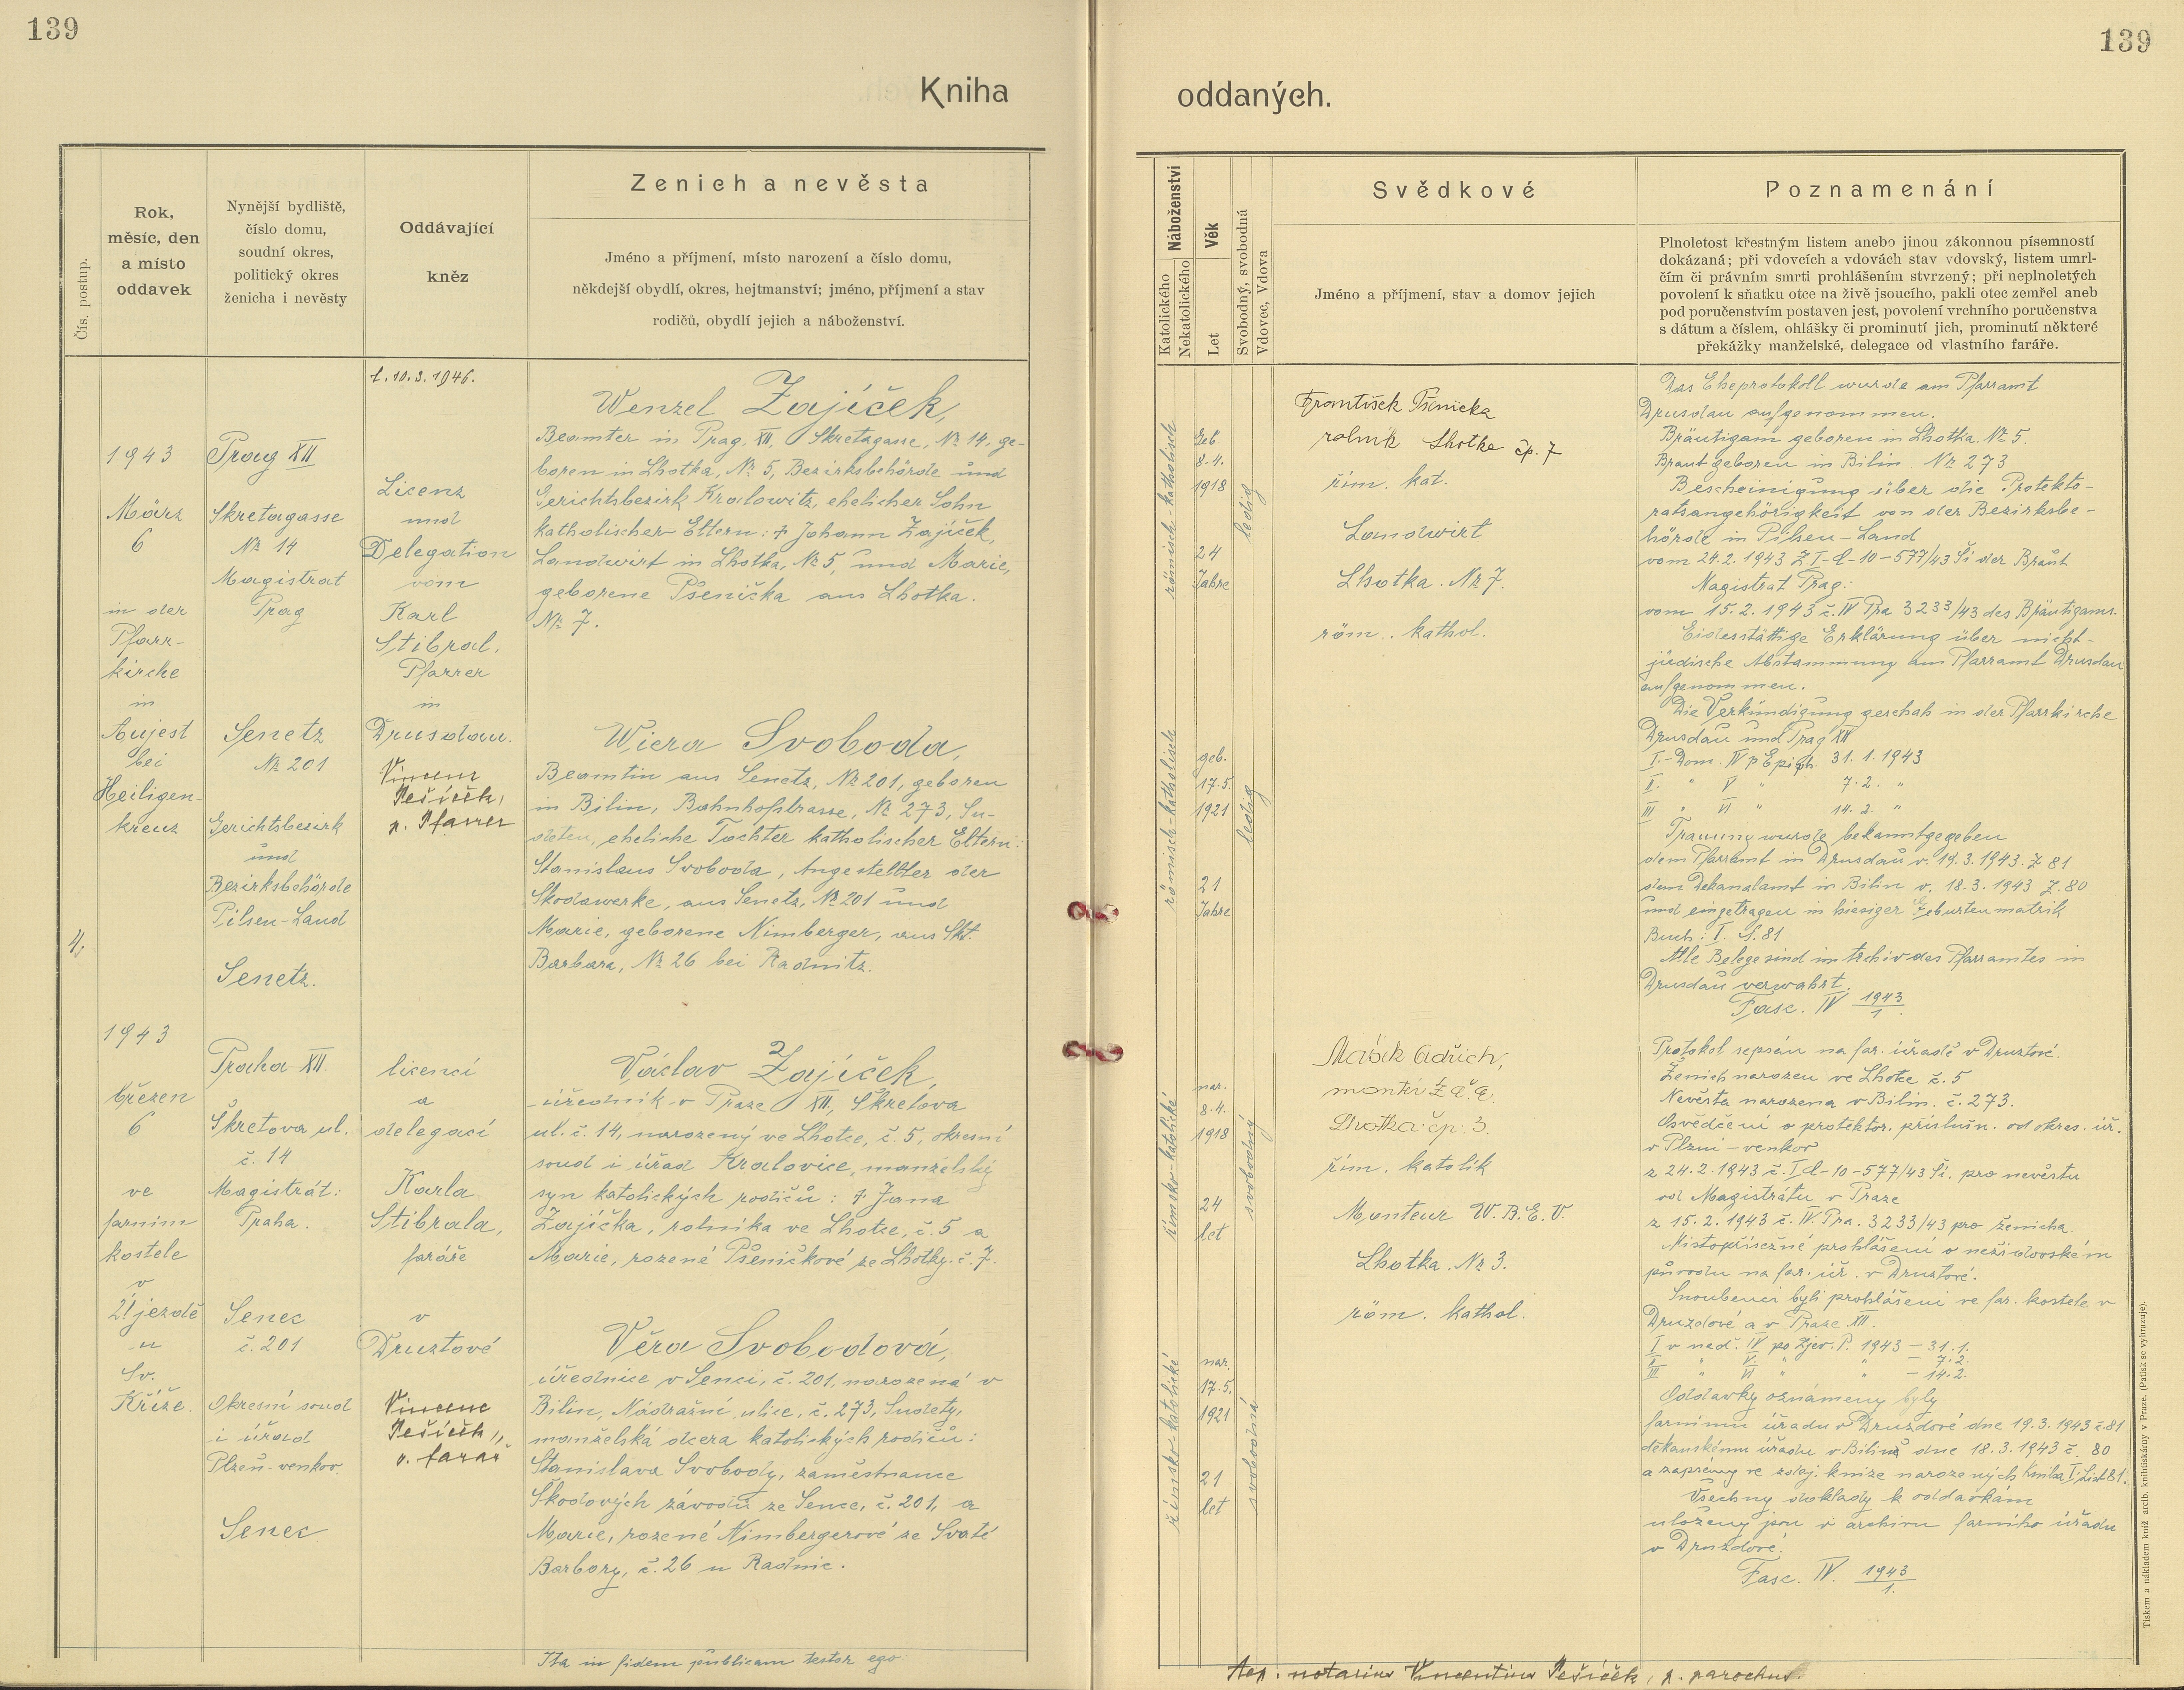 139
139
Kniha
oddaných.
Čís. postup.
Rok,
měsíc, den
a místo
oddavek
Nynější bydliště,
číslo domu,
soudní okres,
politický okres
ženicha i nevěsty
Oddávající
kněz
Zenich a nevěsta
Jméno a příjmení, místo narození a číslo domu,
někdejší obydlí, okres, hejtmanství; jméno, příjmení a stav
rodičů, obydlí jejich a náboženství.
Náboženství
Katolického
Nekatolického
Věk
Let
Svobodný, svobodná
Vdovec, Vdova
Svědkové
Jméno a příjmení, stav a domov jejich
Poznamenání
Plnoletost křestným listem anebo jinou zákonnou písemností
dokázaná; při vdovcích a vdovách stav vdovský, listem umrl-
čím či právním smrti prohlášením stvrzený; při neplnoletých
povolení k sňatku otce na živě jsoucího, pakli otec zemřel aneb
pod poručenstvím postaven jest, povolení vrchního poručenstva
s dátum a číslem, ohlášky či prominutí jich, prominutí některé
překážky manželské, delegace od vlastního faráře.
4.
1943
März
6
in der
Pfarr-
kirche
in
Aujest
bei
Heiligen-
kreuz
Prag XII
Skretagasse
№ 14
Magistrat
Prag
Senetz
№ 201
Gerichtsbezirk
und
Bezirksbehörde
Pilsen-Land
Senetz.
1.10.3.1946.
Licenz
und
Delegation
vom
Karl
Stibral,
Pfarrer
in
Drusdau.
Vincenc
Pešíček,
p. Pfarrer
Wenzel Zajíček,
Beamter in Prag, XII, Skretagasse, № 14, ge-
boren in Lhotka, № 5, Bezirksbehörde und
Gerichtsbezirk Kralowitz, ehelicher Sohn
katholischer Eltern: † Johann Zajíček,
Landwirt in Lhotka, № 5, und Marie,
geborene Pšenička aus Lhotka.
№ 7.
Wiera Svoboda,
Beamtin aus Senetz, № 201, geboren
in Bilin, Bahnhofstrasse, № 273, Su-
deten, eheliche Tochter katholischer Eltern:
Stanislaus Svoboda, Angestellter der
Skodawerke, aus Senetz, № 201 und
Marie, geborene Nimberger, aus Skt.
Barbara, № 26 bei Radnitz.
römisch-katholisch
Geb.
8.4.
1918
24
Jahre
ledig
römisch-katholisch
geb.
17.5.
1921
21
Jahre
ledig
František Pšenička
rolník Lhotka čp. 7
řím. kat.
Landwirt
Lhotka. № 7.
röm. kathol.
Das Eheprotokoll wurde am Pfarramt
Drusdau aufgenommen.
Bräutigam geboren in Lhotka. № 5.
Braut geboren in Bilin № 273
Bescheinigung über die Protekto-
ratsangehörigkeit von der Bezirksbe-
hörde in Pilsen-Land
vom 24.2.1943 Z I-d-10-577/43 Ši der Braut
Magistrat Prag:
vom 15.2.1943 č. IV Pra 3233/43 des Bräutigams.
Eidesstättige Erklärung über nicht-
jüdische Abstammung am Pfarramt Drusdau
aufgenommen.
Die Verkündigung geschah in der Pfarrkirche
Drusdau und Prag XII
I.- Dom. IV p Epiph. 31.1.1943
II. " V " 7.2. "
III " VI " 14.2. "
Trauung wurde bekanntgegeben
dem Pfarramt in Drusdau v. 19.3.1943. Z 81
dem Dekanalamt in Bilin v. 18.3.1943 Z. 80
und eingetragen in hiesiger Geburtenmatrik
Buch: I. S. 81
Alle Belege sind im Archiv des Pfarramtes in
Drusdau verwahrt.
Fasc. IV 1943/1.
1943
březen
6
ve
farním
kostele
v
Újezdě
u
Sv.
Kříže.
Praha XII.
Škretova ul.
č. 14
Magistrát:
Praha.
Senec
č. 201
Okresní soud
i úřad
Plzeň-venkov.
Senec
licencí
a
delegací
Karla
Stibrala,
faráře
v
Druztové
Vincenc
Pešíček,
p. farář
Václav Zajíček,
úředník v Praze XII, Škretova
ul. č. 14, narozený ve Lhotce, č. 5, okresní
soud i úřad Kralovice, manželský
syn katolických rodičů: † Jana
Zajíčka, rolníka ve Lhotce, č. 5 a
Marie, rozené Pšeničkové ze Lhotky č. 7.
Věra Svobodová,
úřednice v Senci, č. 201, narozená v
Bilin, Nádražní ulice, č. 273, Sudety,
manželská dcera katolických rodičů:
Stanislava Svobody, zaměstnance
Škodových závodů ze Sence, č. 201, a
Marie, rozené Nimbergerové ze Svaté
Barbory, č. 26 u Radnic.
římsko-katolické
nar.
8.4.
1918
24
let
svobodný
římsko-katolické
nar.
17.5.
1921
21
let
svobodná
Lhotka čp. 3.
řím. katolík
Monteur W.B.E.V.
Lhotka. № 3.
röm. kathol.
Protokol sepsán na far. úřadě v Druztové.
Ženich narozen ve Lhotce č. 5
Nevěsta narozena v Bilin. č. 273.
Osvědčení o protektor. příslušn. od okres. úř.
v Plzni-venkov
z 24.2.1943 č. I d-10-577/43 Ši. pro nevěstu
od Magistrátu v Praze
z 15.2.1943 č. IV. Pra. 3233/43 pro ženicha.
Místopřísežné prohlášení o nežidovském
původu na far. úř. v Druztové.
Snoubenci byli prohlášeni ve far. kostele v
Druzdové a v Praze XII.
I v ned. IV po Zjev. P. 1943 - 31.1.
II " V " " - 7.2.
III " VI " " - 14.2.
Oddavky oznámeny byly
farnímu úřadu v Druzdové dne 19.3.1943 č. 81
děkanskému úřadu v Bilině dne 18.3.1943 č. 80
a zapsány ve zdej. knize narozených Kniha I, List 81.
Všechny doklady k oddavkám
uloženy jsou v archivu farního úřadu
v Druzdové.
Fasc. IV. 1943/1.
Ita in fidem publicam testor ego:
notarius Vincentius Pešíček, p. parochus.
Tiskem a nákladem kníž. arcib. knihtiskárny v Praze. (Patisk se vyhrazuje).